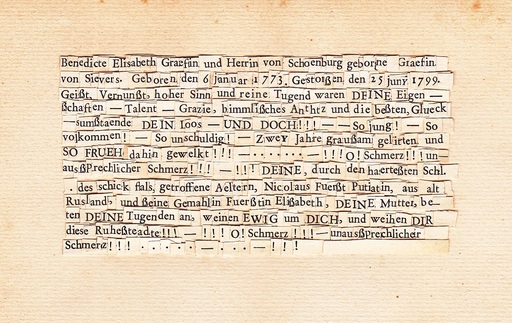 Benedicte Elisabeth Graefin und Herrin von Schoenburg geborne Graefin
von Sievers. Geboren den 6 januar 1773. Gestorßen den 25 juny 1799.
Geißt, Vernunßt, hoher Sinn und reine Tugend waren DEINE Eigen —
ßchaften — Talent — Grazie, himmlißches Antlitz und die beßten, Glueck
—sumßtaende DEIN loos — UND DOCH!!! — — So jung! — So
volkommen! — So unschuldig! — Zwey Jahre graußam gelitten und
SO FRUEH dahin gewelkt!!! — · · · · · · — !!! O! Schmerz!!! un
ausßprechlicher Schmerz!!! — !!! DEINE, durch den haerteßten Schl.
. des schick ſals, getroffene Aeltern, Nicolaus Fuerßt Putiatin, aus alt
Rusland, und ßeine Gemahlin Fuerßtin Elißabeth, DEINE Mutter, be—
ten DEINE Tugenden an, weinen EWIG um DICH, und weihen DIR
diese Ruheßteadte!!! — !!! O! Schmerz!!! — unausßprechlicher
Schmerz!!! · · · · · — · · · — !!!